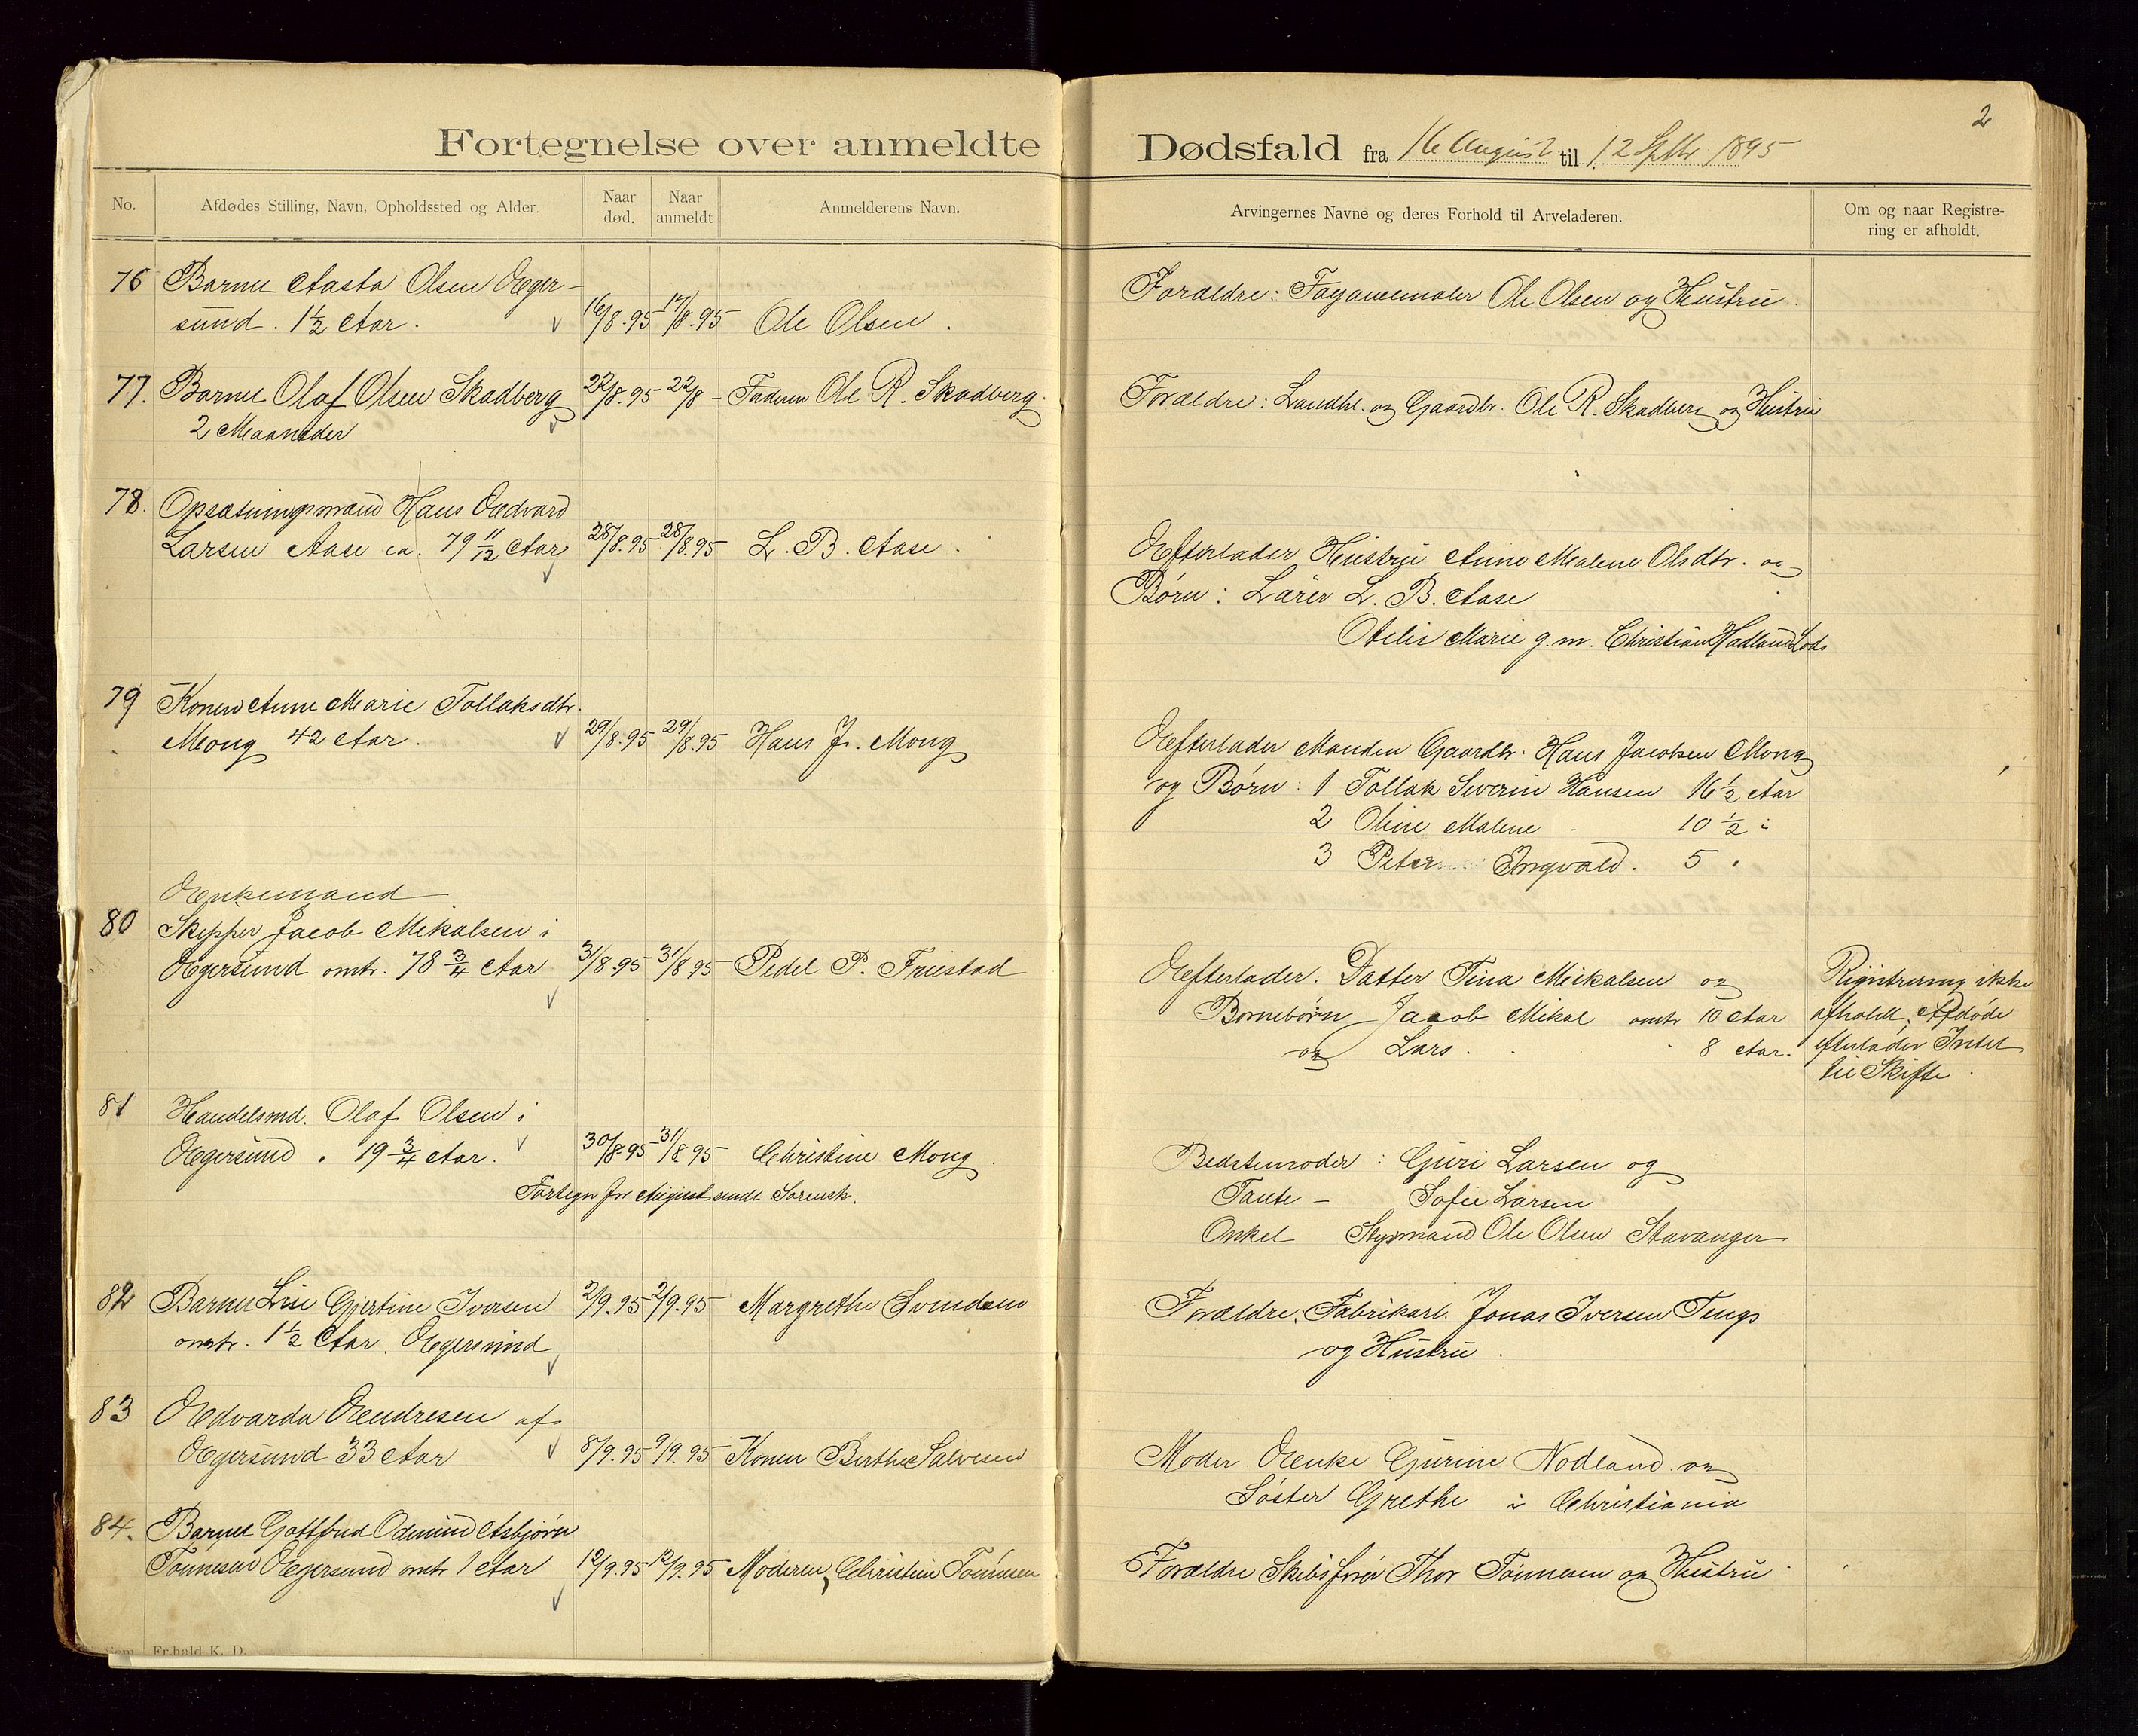 2
Fortegnelse over anmeldte Dødsfald fra 16 August til 12 Septbr 1895
No. Afdødes Stilling, Navn, Opholdssted og Alder. Naar død. Naar anmeldt Anmelderens Navn. Arvingernes Navne og deres Forhold til Arveladeren. Om og naar Registrering er afholdt.
76 Barnet Aasta Olsen Eger-
sund. 1½ Aar. 16/8.95 17/8.95 Ole Olsen.
Forældre: Fayancemaler Ole Olsen og Hustru.
77. Barnet Olaf Olsen Skadberg 22/8.95 22/8 - Faderen Ole R. Skadberg.
2 Maaneder
Forældre: Landhl. og Gaardbr. Ole R. Skadberg og Hustru
78. Opsætningsmand Hans Edvard
Larsen Aase ca. 79 11/12 Aar 28/8.95 28/8.95 L. B. Aase.
Efterlader Hustru Anne Malene Olsdtr. og
Børn: Lärer L. B. Aase
Otelie Marie g.m. Christian Hadland Lods
79 Konen Anne Marie Tollaksdtr.
Mong 42 Aar. 29/8.95 29/8.95 Hans J. Mong
Efterlader Manden Gaardbr. Hans Jacobsen Mong
og Børn: 1 Tollak Severin Hansen 16½ Aar
2 Oline Malene 10½ "
3 Peter Ingvald. 5 "
Enkemand
80 Skipper Jacob Mikalsen i
Egersund omtr. 78¾ Aar 31/8.95 31/8 95 Pedel P. Friestad
Efterlader: Datter Tina Mikalsen og
Børnebørn Jacob Mikal omtr 10 Aar
og Lars. 8 Aar.
Registrering ikke
afholdt, Afdøde
efterlader Intet
til Skifte.
81 Handelsmd. Olaf Olsen i
Egersund. 19¾ Aar. 30/8.95 31/8.95 Christine Mong.
Fortegn for August sendt Sorensk.
Bedstemoder: Guri Larsen og
Tante - Sofie Larsen
Onkel Styrmand Ole Olsen Stavanger
82 Barnet Lise Gjertine Iversen 2/9.95 2/9.95 Margrethe Svendsen
omtr. 1½ Aar. Egersund
Forældre: Fabrikarb. Jonas Iversen Tengs
og Hustru.
83 Edvarda Endresen af
Egersund 33 Aar 8/9.95 9/9.95 Konen Berthe Salvesen
Moder Enke Gurine Nodland og
Søster Grethe i Christiania
84. Barnet Gottfred Odmund Asbjørn
Tønnesen Egersund omtr 1 Aar 12/9.95 12/9.95 Moderen, Christine Tönnesen
Forældre Skibsfører Thor Tønnesen og Hustru
Sem Fr.hald K. D.